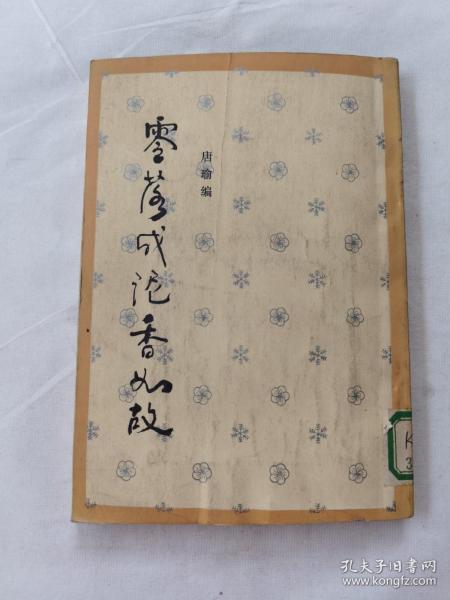 零落成泥香如故
唐瑜编
K
3
孔夫子旧书网
www.kongfz.com